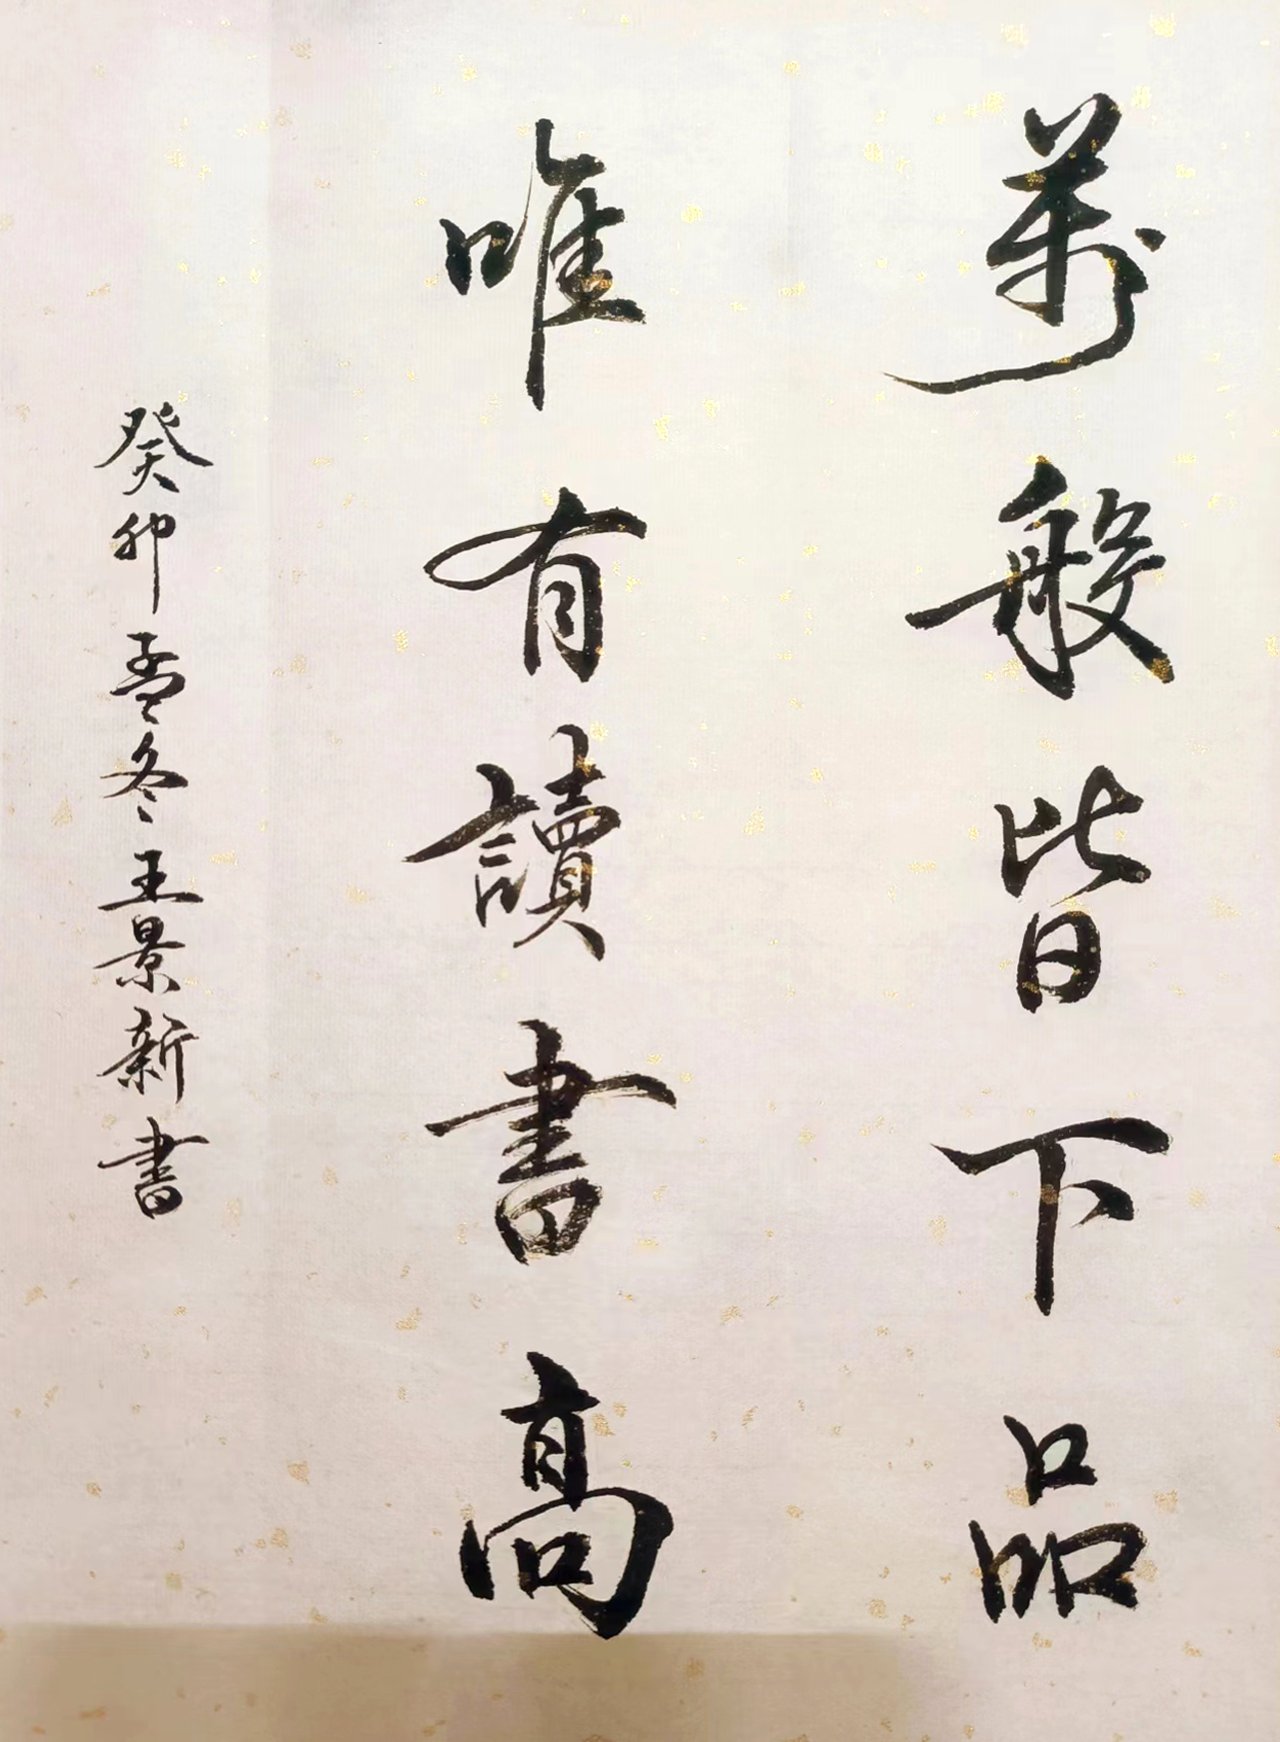 萬般皆下品
唯有讀書高
癸卯孟冬王景新書